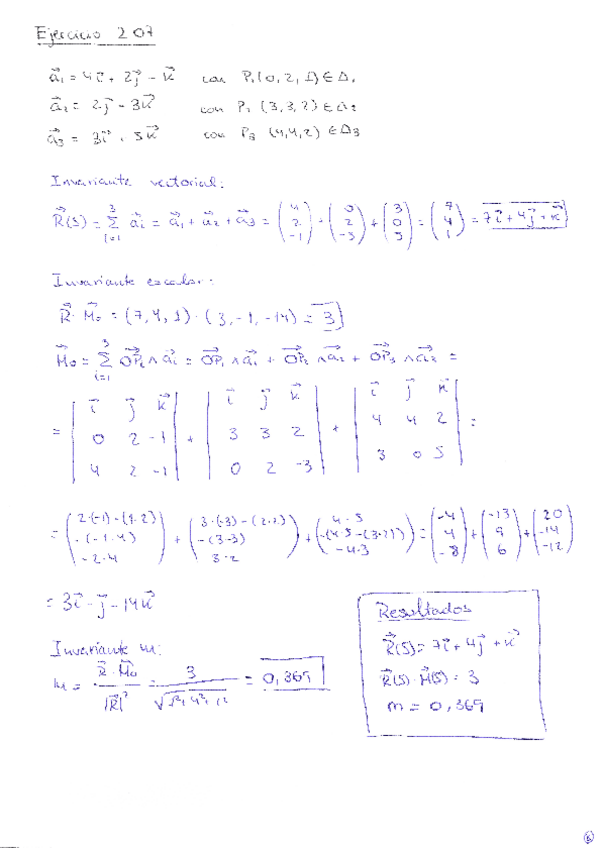 Ejercicio 2 07
a⃗₁ = 4i⃗ + 2j⃗ - k⃗ con P₁(0, 2, 1) ∈ Δ₁
a⃗₂ = 2j⃗ - 3k⃗ con P₂ (3,3,2) ∈ Δ₂
a⃗₃ = 3i⃗ + 5k⃗ con P₃ (4,4,2) ∈ Δ3
Invariante vectorial:
R⃗(S) = Σ³ᵢ₌₁ a⃗i = a⃗₁ + a⃗₂ + a⃗3 = (4 2 -1) + (0 2 -3) + (3 0 5) = (7 4 1) = 7i⃗ + 4j⃗ + k⃗
Invariante escalar:
R⃗ · M⃗o = (7, 4, 1) · (3, -1, -14) = 3
M⃗o = Σ³ᵢ₌₁ OP⃗i ∧ a⃗i = OP⃗₁ ∧ a⃗₁ + OP⃗₂ ∧ a⃗₂ + OP⃗₃ ∧ a⃗₃ =
= |i⃗ j⃗ k⃗ 0 2 -1 4 2 -1| + |i⃗ j⃗ k⃗ 3 3 2 0 2 -3| + |i⃗ j⃗ k⃗ 4 4 2 3 0 5| =
= (2·(-1) - (1·2) -(-1·4) -2·4) + (3·(-3) - (2·2) -(3·3) 3·2) + (4·5 -(4·5 - (3·2)) -4·3) = (-4 4 -8) + (-13 9 6) + (20 -14 -12)
= 3i⃗ - j⃗ - 14k⃗
Invariante m:
m = R⃗ · M⃗o / |R⃗|² = 3 / = 0,369
Resultados
R⃗(S) = 7i⃗ + 4j⃗ + k⃗
R⃗(S) · M⃗(S) = 3
m = 0,369